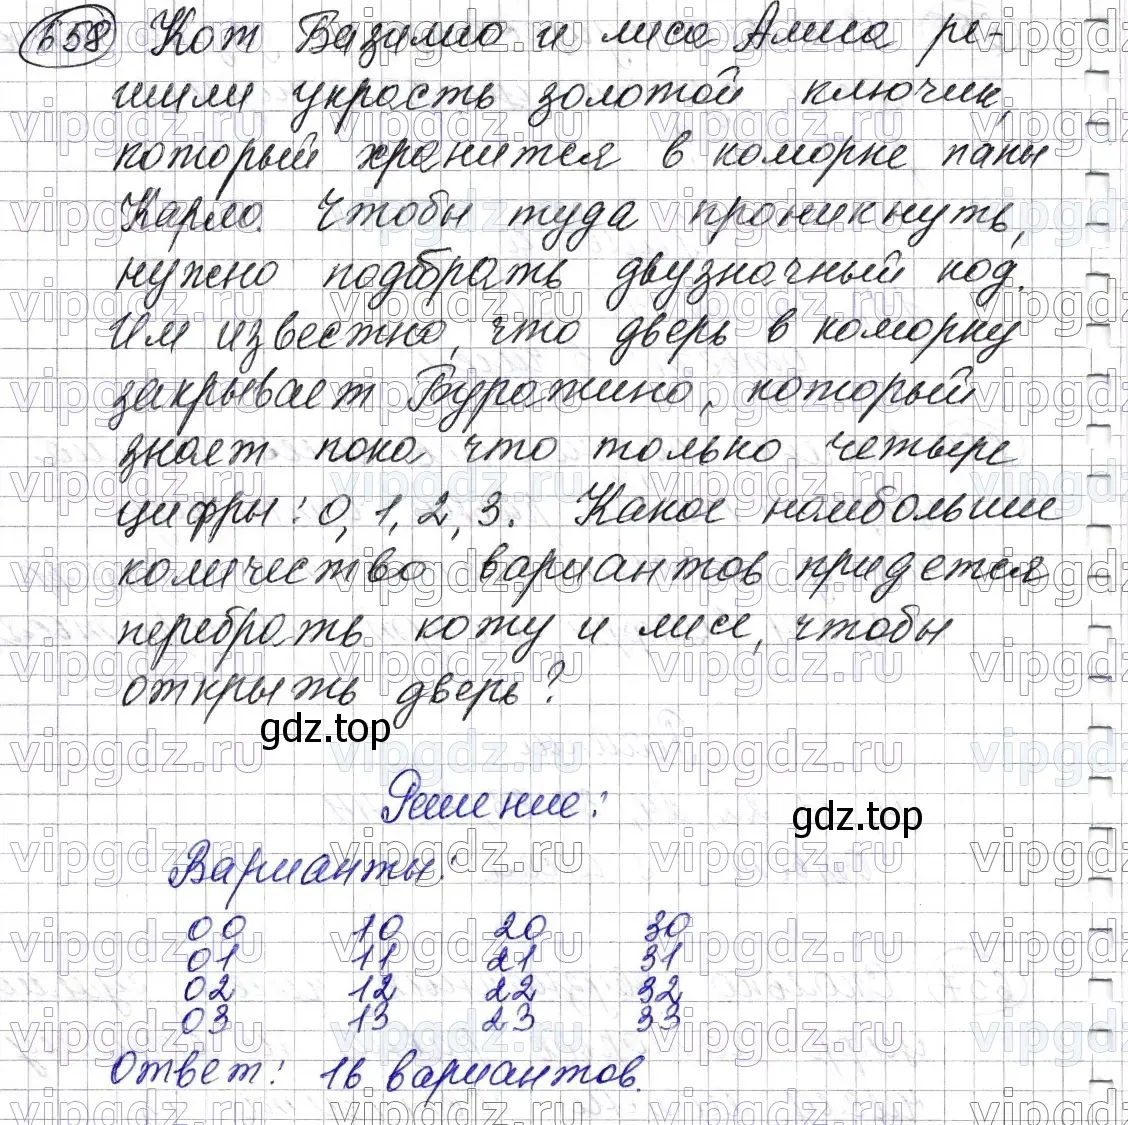 658 Кот Базилио и лиса Алиса ре-
шили украсть золотой ключик,
который хранится в каморке папы
Карло. Чтобы туда проникнуть,
нужно подобрать двузначный код.
Им известно, что дверь в каморку
закрывает Буратино, который
знает пока что только четыре
цифры: 0, 1, 2, 3. Какое наибольшее
количество вариантов придется
перебрать коту и лисе, чтобы
открыть дверь?
gdz.top
Решение:
gdz.top
Варианты:
00 10 20 30
01 11 21 31
02 12 22 32
03 13 23 33
Ответ: 16 вариантов.